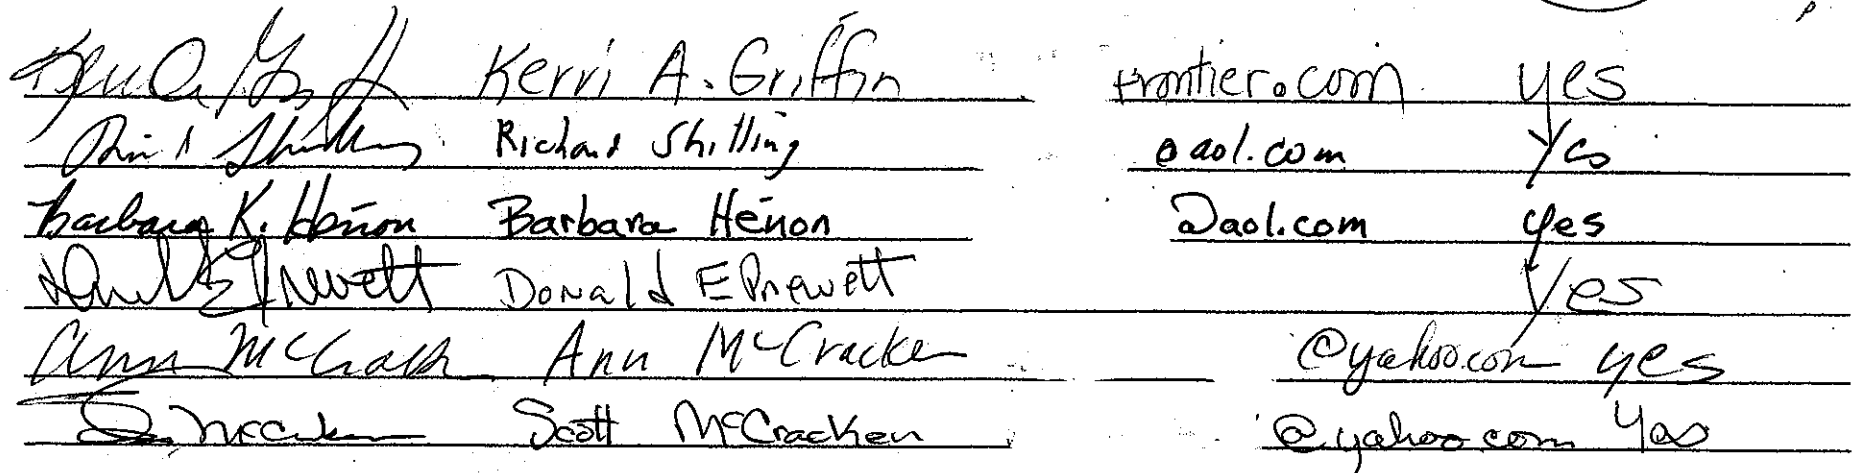 Kerri A. Griffin Kerri A. Griffin frontier.com yes
Richard Shilling Richard Shilling @aol.com Yes
Barbara K. Henon Barbara Henon @aol.com yes
Donald E Prewett Donald E Prewett Yes
Ann McCracken Ann McCracken @yahoo.com yes
McCracken Scott McCracken @yahoo.com Yes